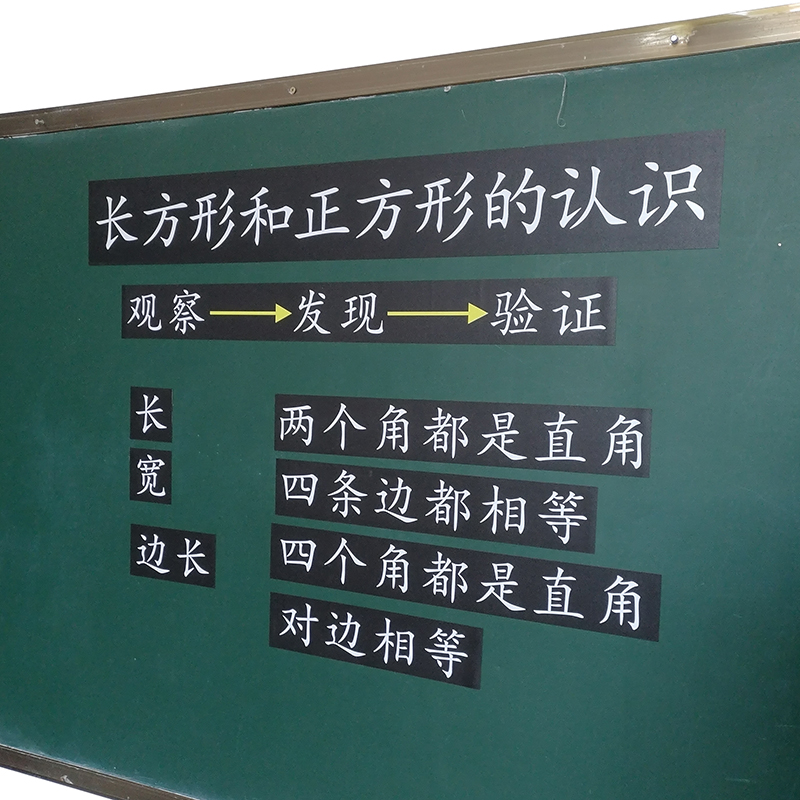 长方形和正方形的认识
观察→发现→验证
长
宽
边长
两个角都是直角
四条边都相等
四个角都是直角
对边相等